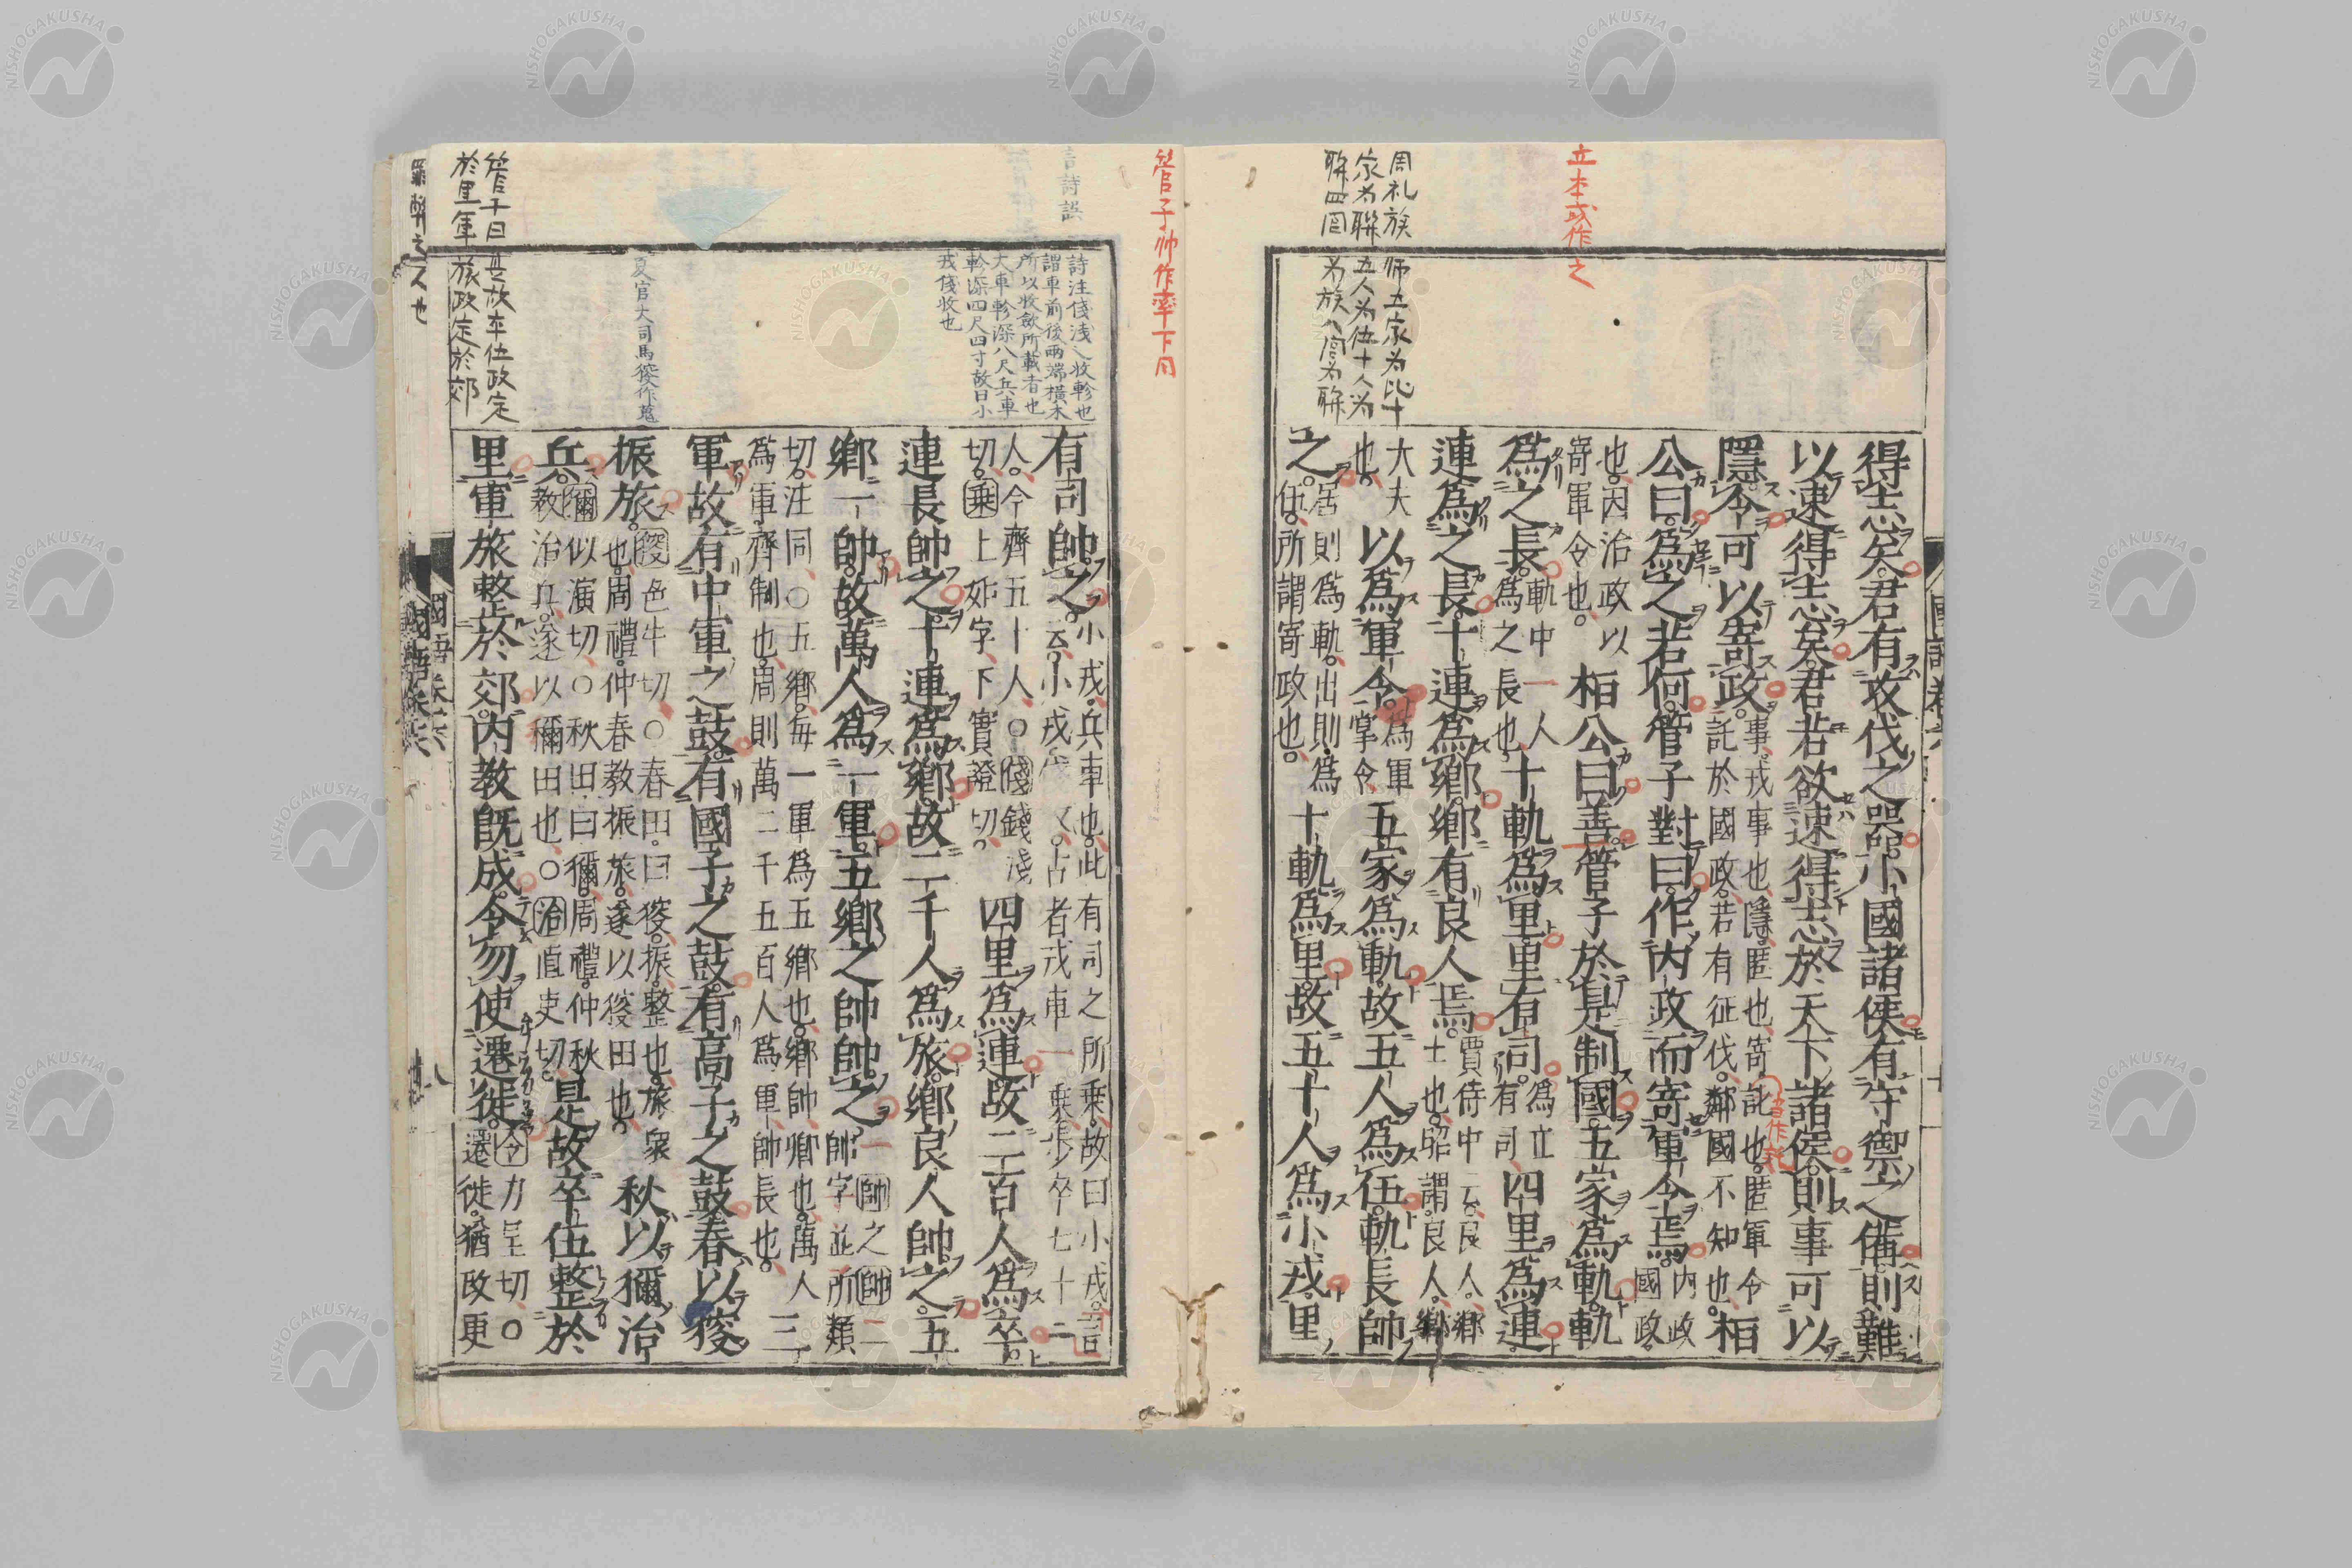 得志矣君有攻伐之器小國諸侯有守禦之備則難
以速得志矣君若欲速得志於天下諸侯則事可以
隱令可以寄政事戎事也隱匿也寄託也匿軍令託於國政若有征伐鄰國不知也桓
公曰爲之若何管子對曰作內政而寄軍令焉內政國政
也因治政以寄軍令也桓公曰善管子於是制國五家爲軌軌
爲之長軌中一人爲之長也十軌爲里里有司爲立有司四里爲連
連爲之長十連爲鄉鄉有良人焉賈侍中云良人鄉士也昭謂良人鄉
大夫也以爲軍令爲軍掌令五家爲軌故五人爲伍軌長帥
之居則爲軌出則爲伍所謂寄政也十軌爲里故五十人爲小戎里
有司帥之小戎兵車也此有司之所乘故曰小戎詩云小戎俴收古者戎車一乘步卒七十二
人今齊五十人○俴錢淺切乘上如字下實證切四里爲連故二百人爲卒
連長帥之十連爲鄉故二千人爲旅鄉良人帥之五
鄉一帥故萬人爲一軍五鄉之帥帥之一帥之帥二帥字並所類
切注同○五鄉每一軍爲五鄉也鄉帥卿也萬人爲軍齊制也周則萬二千五百人爲軍帥長也三
軍故有中軍之鼓有國子之鼓有高子之鼓春以獀
振旅獀色牛切○春田曰獀振整也旅衆也周禮仲春教振旅遂以獀田也秋以獮治
兵獮似演切○秋田曰獮周禮仲秋教治兵遂以獮田也○治直吏切是故卒伍整於
里軍旅整於郊內教既成令勿使遷徙令力呈切○遷徙猶改更
立本或作之
周礼族師五家为比十
家为聯五人为伍十人为
聯四閭为族八閭为聯
管子帥作率下同
言詩誤
詩注俴淺也收軫也
謂車前後兩端橫木
所以收斂所載者也
大車軫深八尺兵車
軫深四尺四寸故曰小
戎俴收也
夏官大司馬獀作蒐
管子曰是故卒伍政定
於里軍旅政定於郊
國語卷六
八
NISHOGAKUSHA